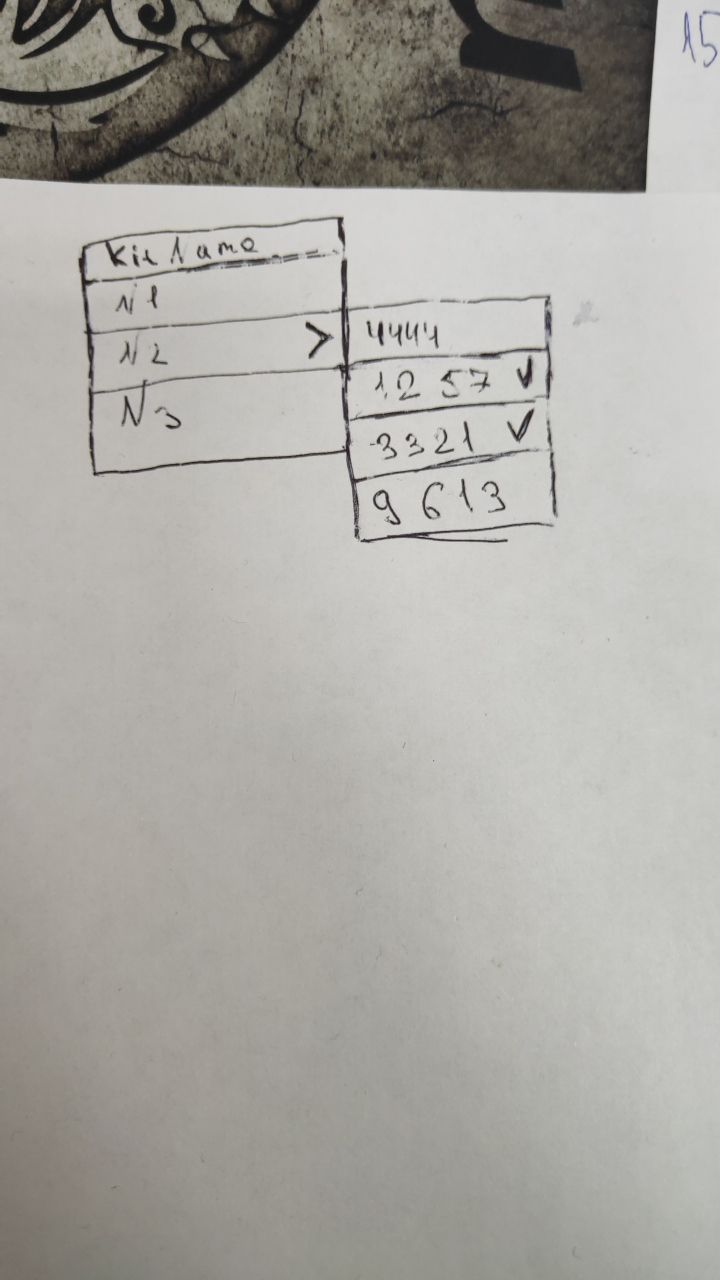 15
Kit Name
N1
N2 >
N3
4444
1257 ✓
3321 ✓
9613